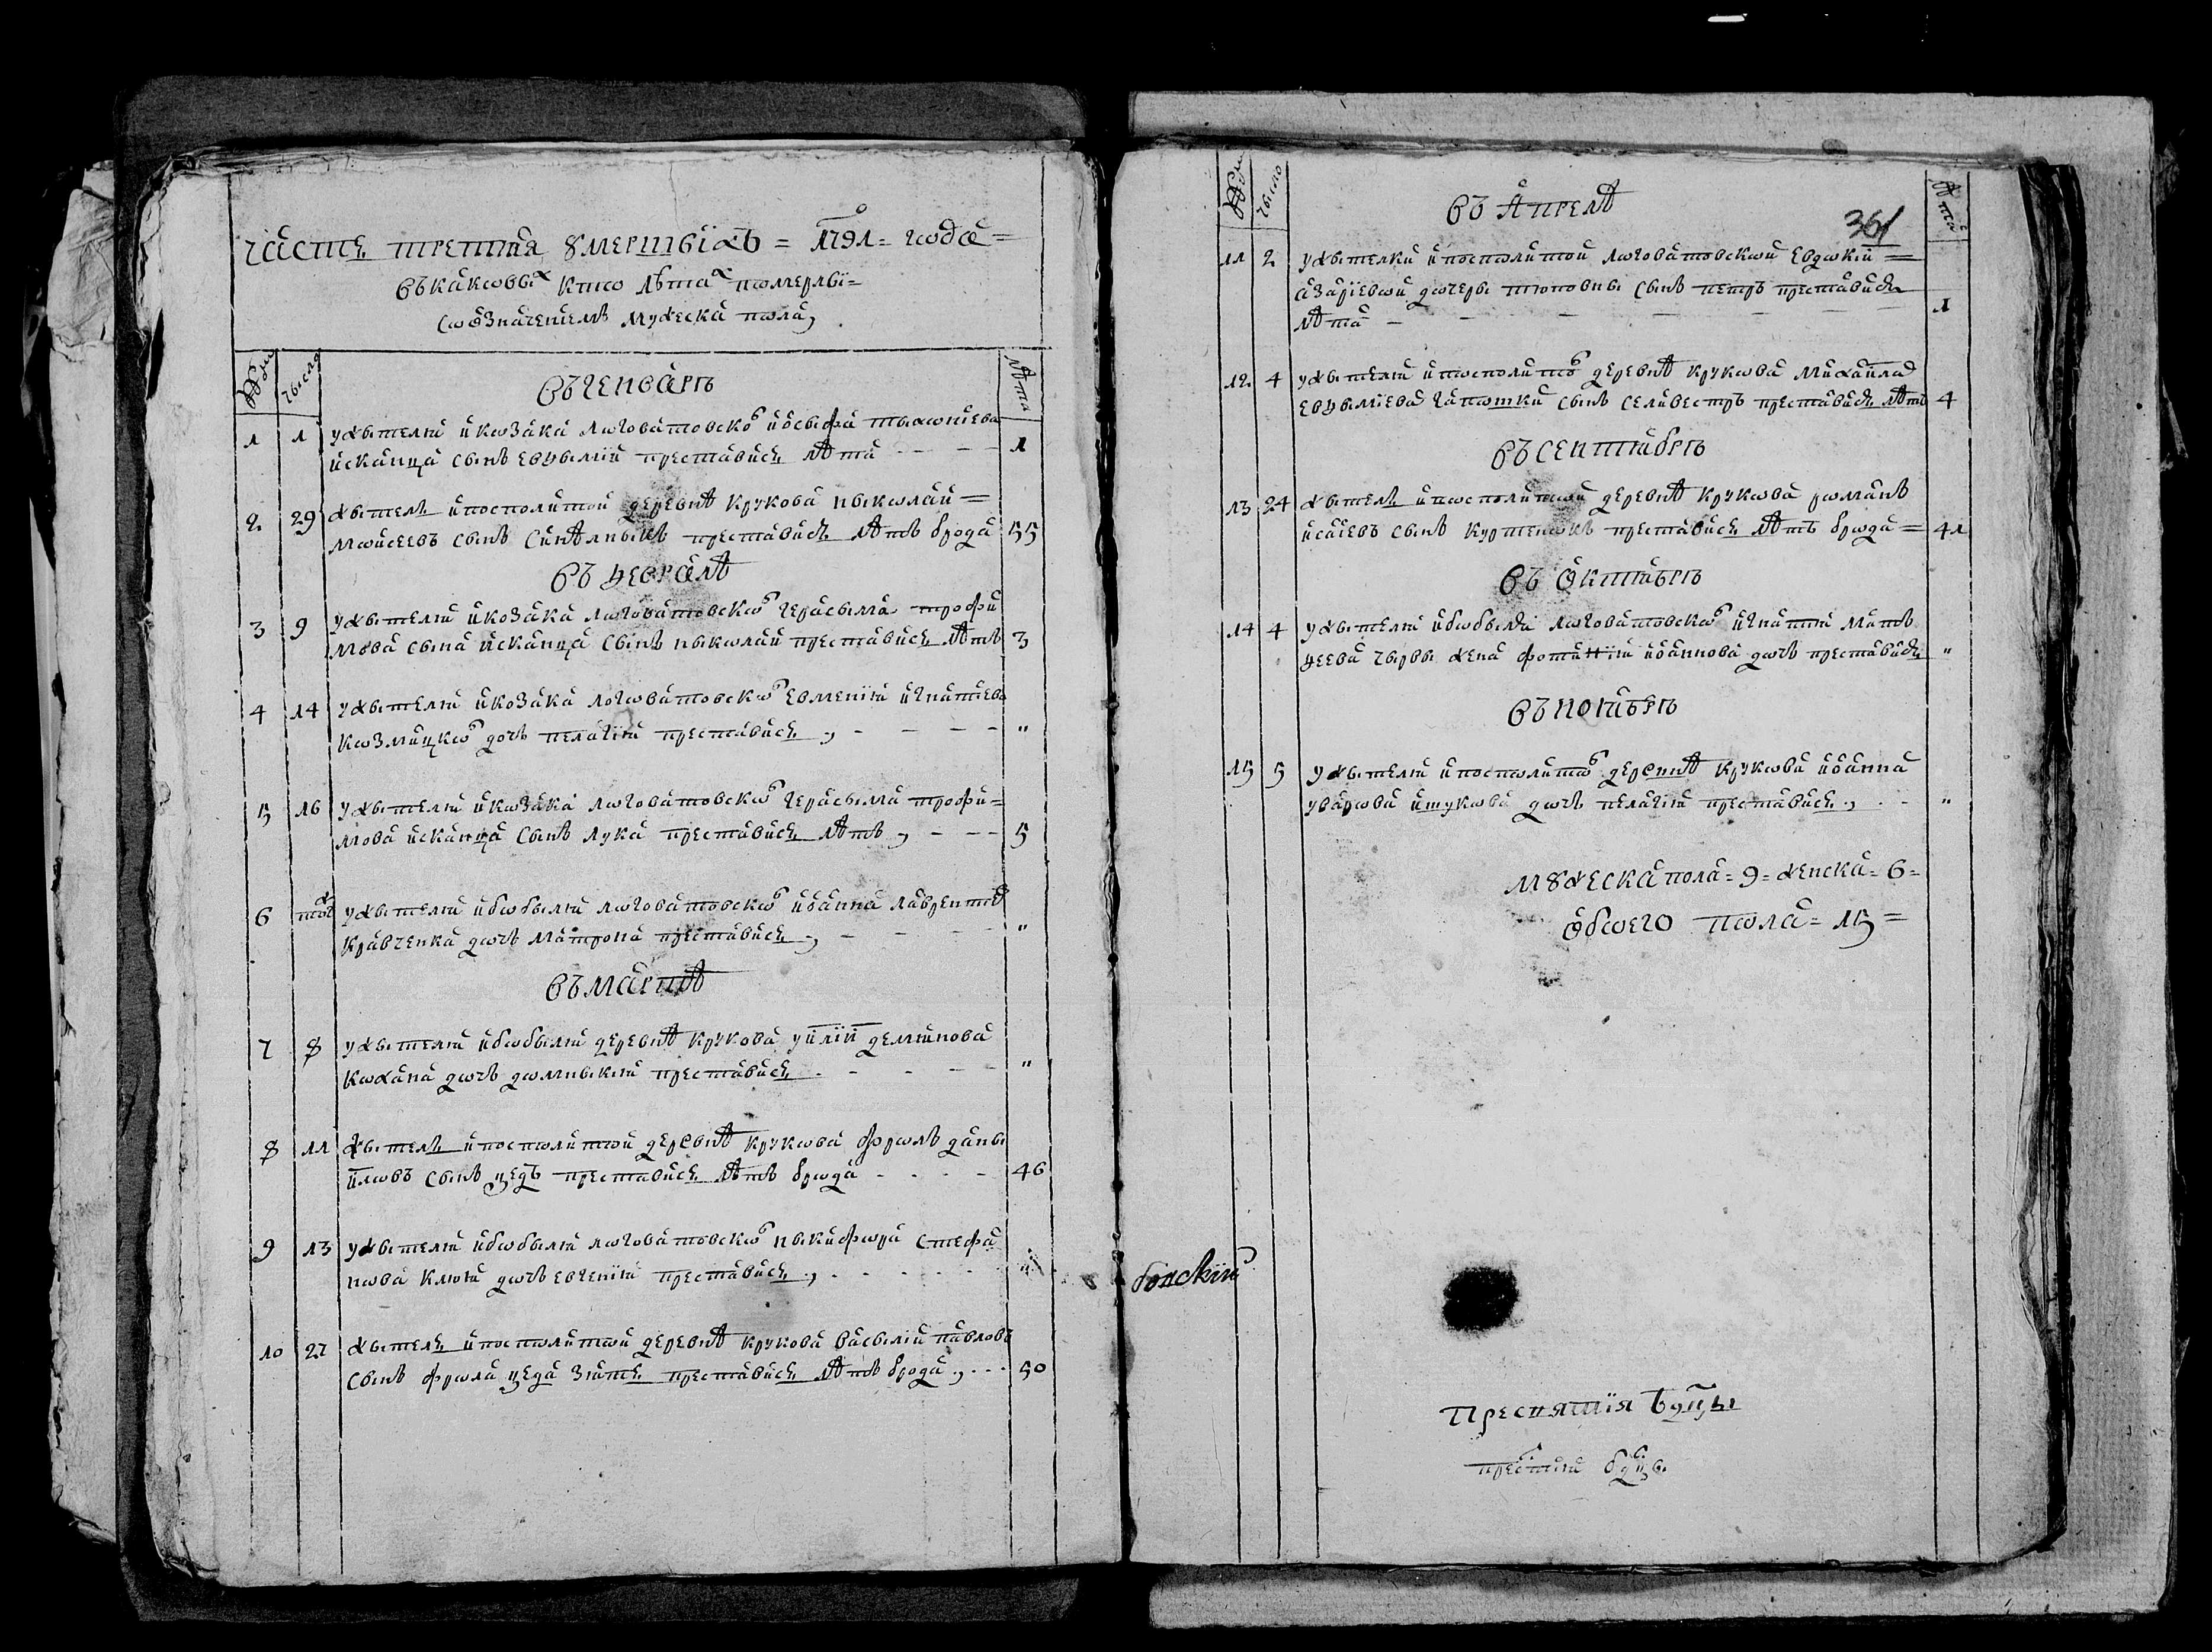 часть третяя ꙋмершихъ = 1791 = года =
въ каковых кто лѣтах померлы =
со ѡзначениемъ мужеска пола,
числа
лѣта
въ генварѣ
1 1 у жытеля и козака логоватовского иосыфа тыхониева
исканца сынъ евфымий преставися лѣта – – – 1
2 29 жытель и посполитой деревнѣ крукова ныколай =
моисеевъ сынъ синѣлныкъ преставися лѣтъ врода 55
въ февралѣ
3 9 у жытеля и козака логоватовского герасыма трофи
мова сына исканца сынъ ныколай преставися лѣтъ 3
4 14 у жытеля и козака логоватовского евмения игнатиева
козмицкого дочь пелагия преставися, – – – – "
5 16 у жытеля и козака логоватовского герасыма трофи =
мова исканца сынъ лука преставися лѣтъ, – – – 5
6 тож у жытеля и бобыля логоватовского иоанна лаврентиев
кравченка дочь матрона преставися, – – – "
въ мартѣ
7 8 у жытеля и бобыля деревнѣ крукова уилии деминова
кохана дочь домныкия преставися – – – – "
8 11 жытель и посполитой деревнѣ крукова форолъ даны
иловъ сынъ цедъ преставися лѣтъ врода – – – – 46
9 13 у жытеля и бобыля логоватовского ныкифора стефа
нова клюя дочь евгения преставися, – – – – "
10 27 жытель и посполитой деревнѣ крукова васылий павловъ
сынъ фрола цеда зять преставися лѣтъ врода, – – – 50
число
лѣта
361
въ апрелѣ
11 2 у жытелки и посполитой логоватовской евдокии =
азариевой дочеры тюповны сынъ петръ преставися
лѣта – – – – – – 1
12 4 у жытеля и посполитого деревнѣ крукова михаила
евфымиева гапотки сынъ селивестръ преставися лѣтъ 4
въ септябрѣ
13 24 жытель и посполитой деревнѣ крукова романъ
исаіевъ сынъ куртенокъ преставися лѣтъ врода = 41
въ ѡктябрѣ
14 4 у жытеля и бобыля логоватовского игнатия матъ
феева чырвы жена фотиния иоаннова дочь преставися "
въ ноябрѣ
15 5 у жытеля и посполитого деревнѣ крукова иоанна
уварова ищукова дочь пелагия преставися, – – "
мꙋжеска пола = 9 = женска = 6 =
ѡбоего пола = 15 =